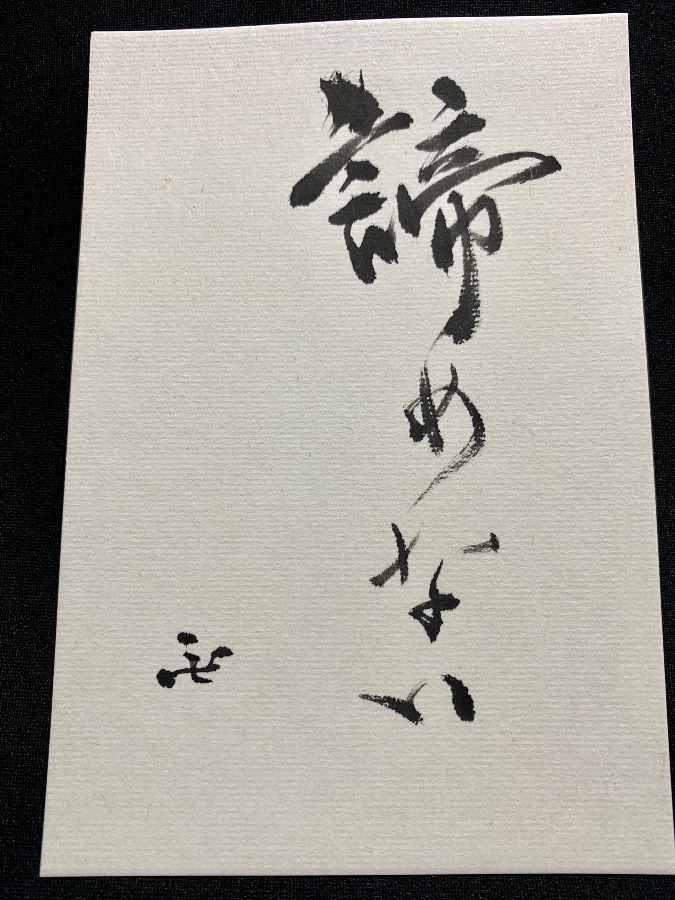 諦めない